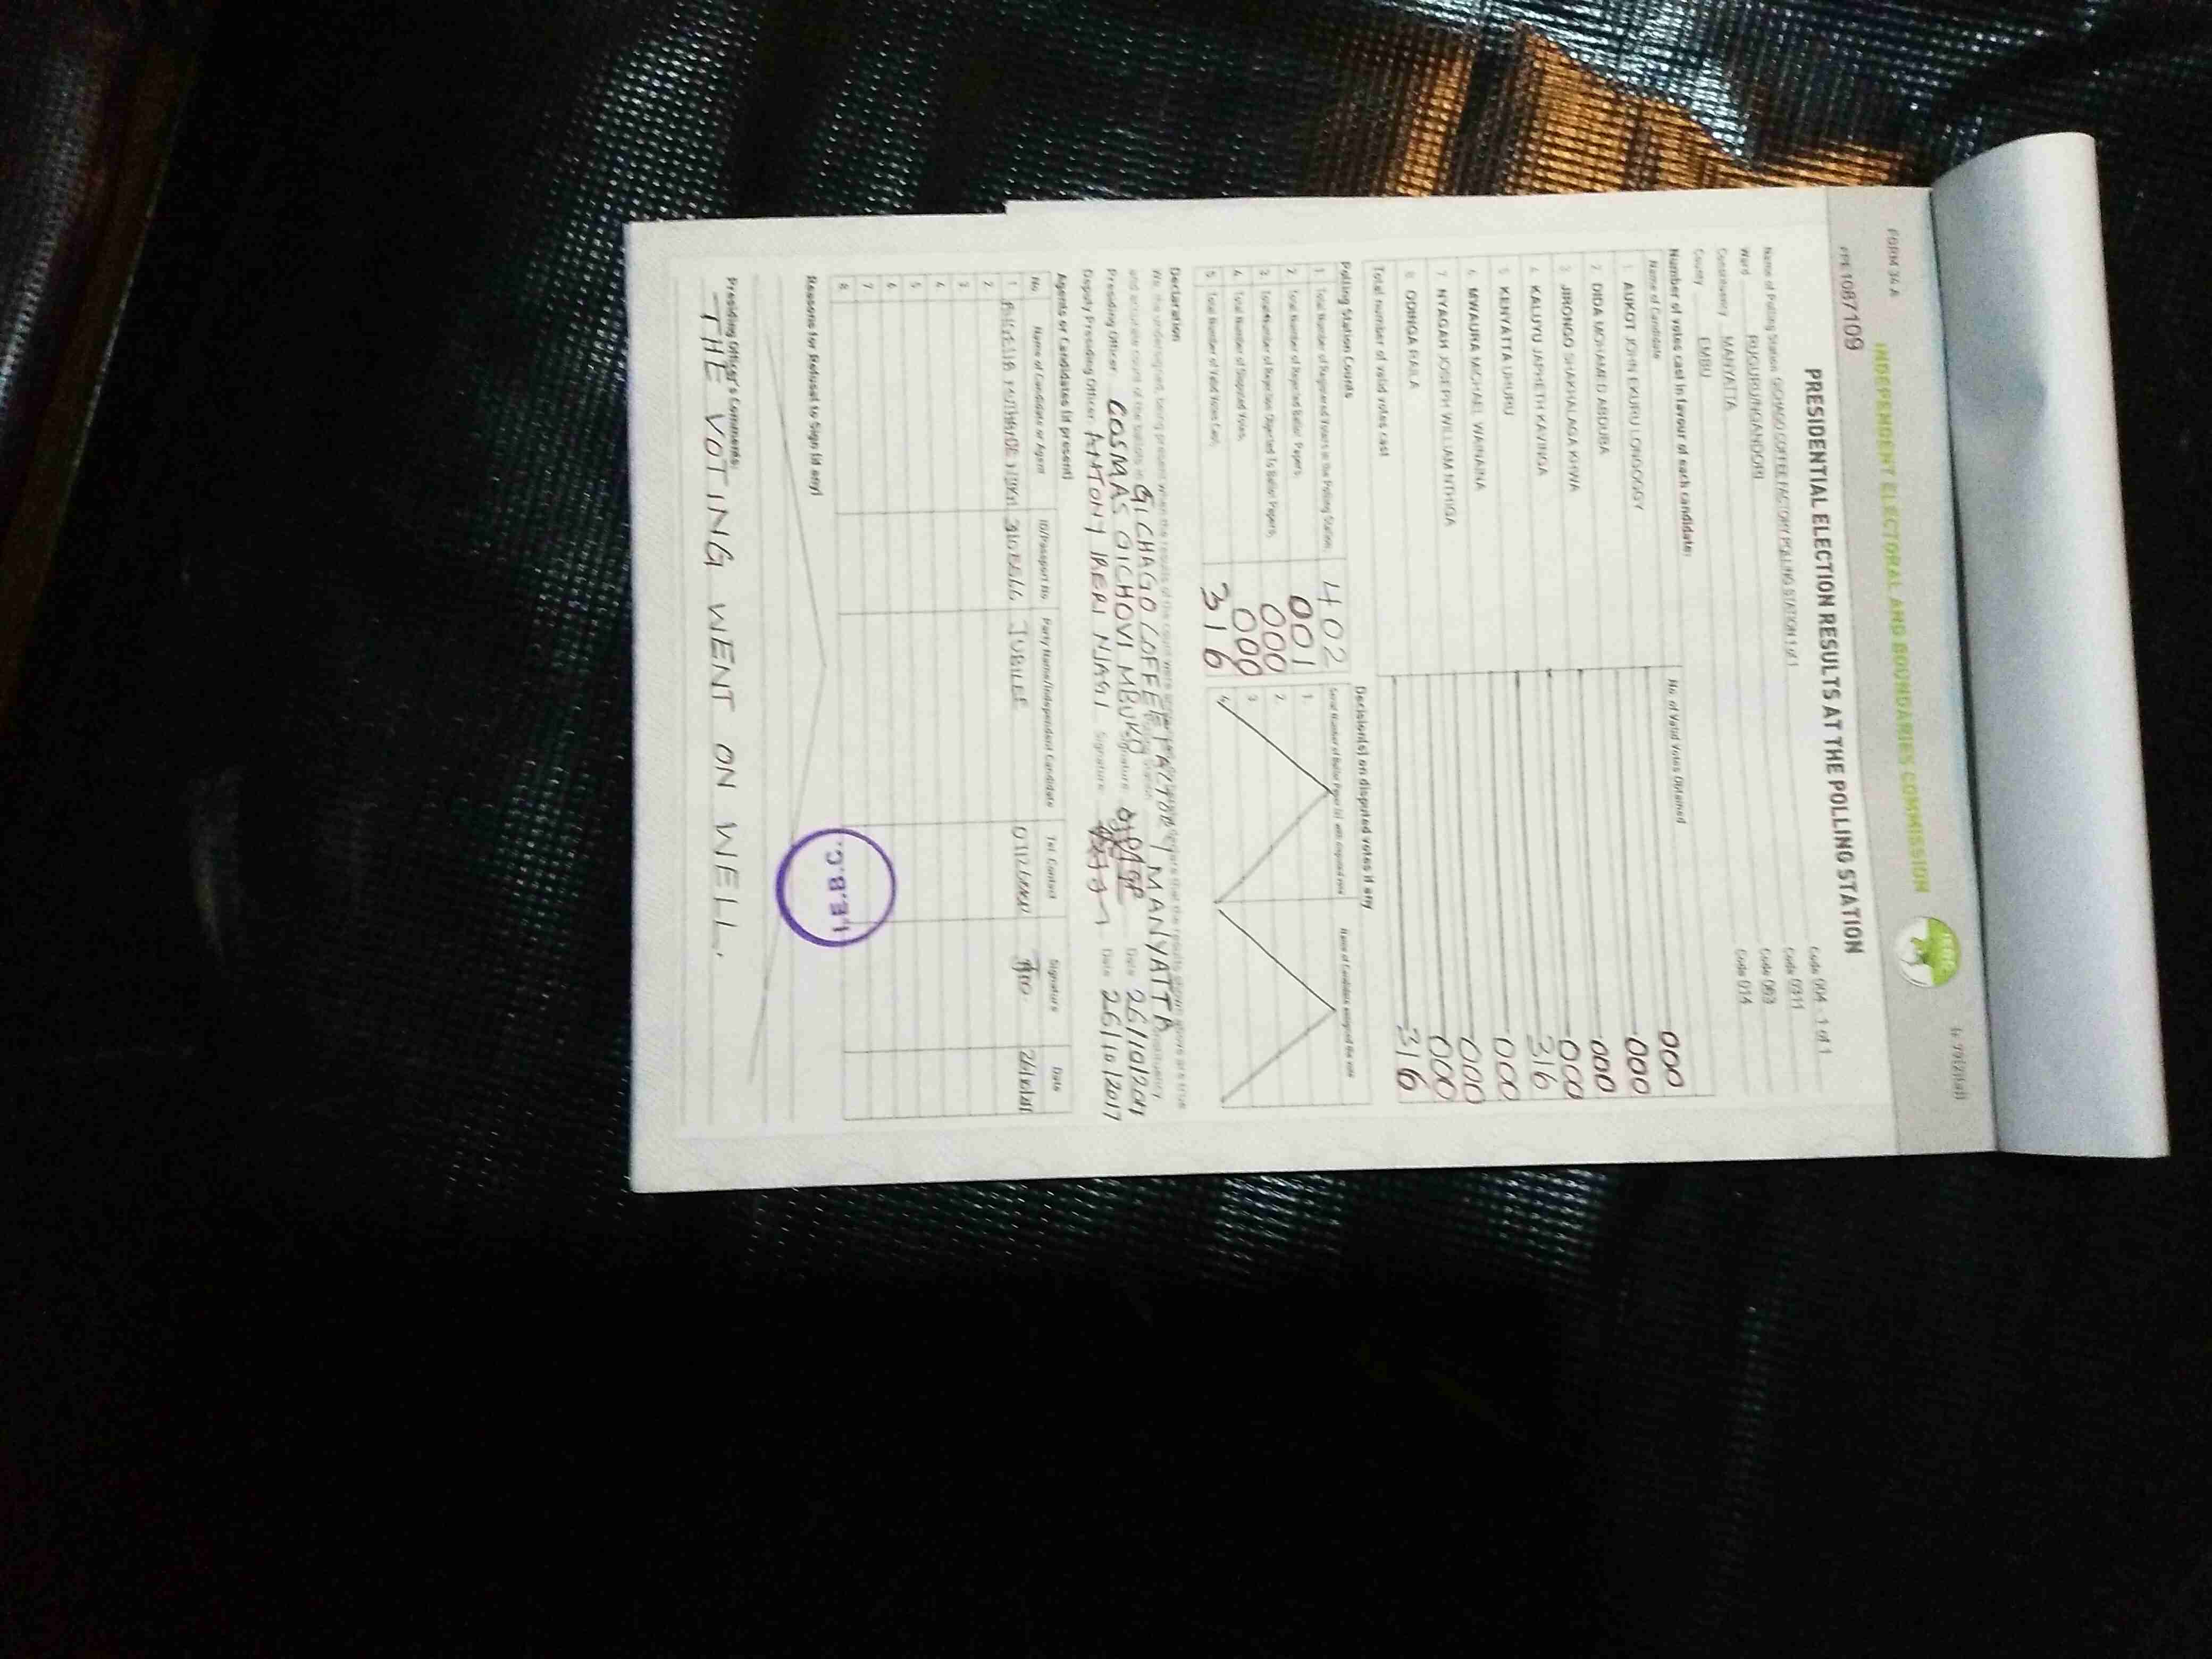 FORM 34 A
INDEPENDENT ELECTORAL AND BOUNDARIES COMMISSION
IEBC
PRE 1087109
PRESIDENTIAL ELECTION RESULTS AT THE POLLING STATION
Name of Polling Station GICHAGO COFFEE FACTORY POLLING STATION 1 of 1 Code 004 - 1 of 1
Ward RUGURU/NGANDORI Code 0311
Constituency MANYATTA Code 063
County EMBU Code 014
Number of votes cast in favour of each candidate:
Name of Candidate No. of Valid Votes Obtained
1. AUKOT JOHN EKURU LONGOGGY 000
2. DIDA MOHAMED ABDUBA 000
3. JIRONGO SHAKHALAGA KHWA 000
4. KALUYU JAPHETH KAVINGA 000
5. KENYATTA UHURU 316
6. MWAURA MICHAEL WAINAINA 000
7. NYAGAH JOSEPH WILLIAM NTHIGA 000
8. ODINGA RAILA 000
Total number of valid votes cast 316
Polling Station Counts
1. Total Number of Registered Voters in the Polling Station; 402
2. Total Number of Rejected Ballot Papers; 001
3. Total Number of Rejection Objected To Ballot Papers; 000
4. Total Number of Disputed Votes; 000
5. Total Number of Valid Votes Cast; 316
Decision(s) on disputed votes if any
Serial Number of Ballot Paper (s) with disputed vote Name of Candidate assigned the vote
1.
2.
3.
4.
Declaration
We, the undersigned, being present when the results of the count were
and accurate count of the ballots in GICHAGO COFFEE FACTORY MANYATTA Constituency
Presiding Officer COSMAS GICHOVI MBUKO Signature Date 26/10/2017
Deputy Presiding Officer ANTONY IRERI NJAGI Signature Date 26/10/2017
Agents or Candidates (if present)
No. Name of Candidate or Agent ID/Passport No Party Name/Independent Candidate Tel. Contact Signature Date
1. JUBILEE
2.
3.
4.
5.
6.
7.
8.
Reasons for Refusal to Sign (if any)
I.E.B.C.
Presiding Officer's Comments:
THE VOTING WENT ON WELL.